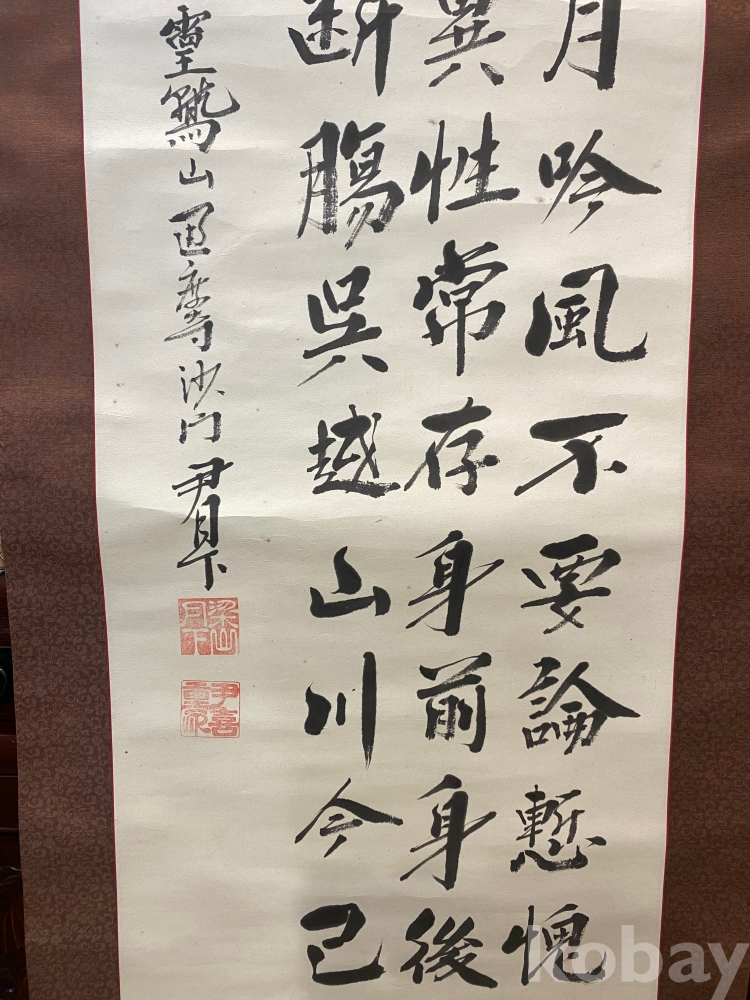 月吟風不要論慙愧
異性常存身前身後
断膓吳越山川今已
靈鷲山通度寺沙門尹月下
梁山月下
尹喜重印
kobay